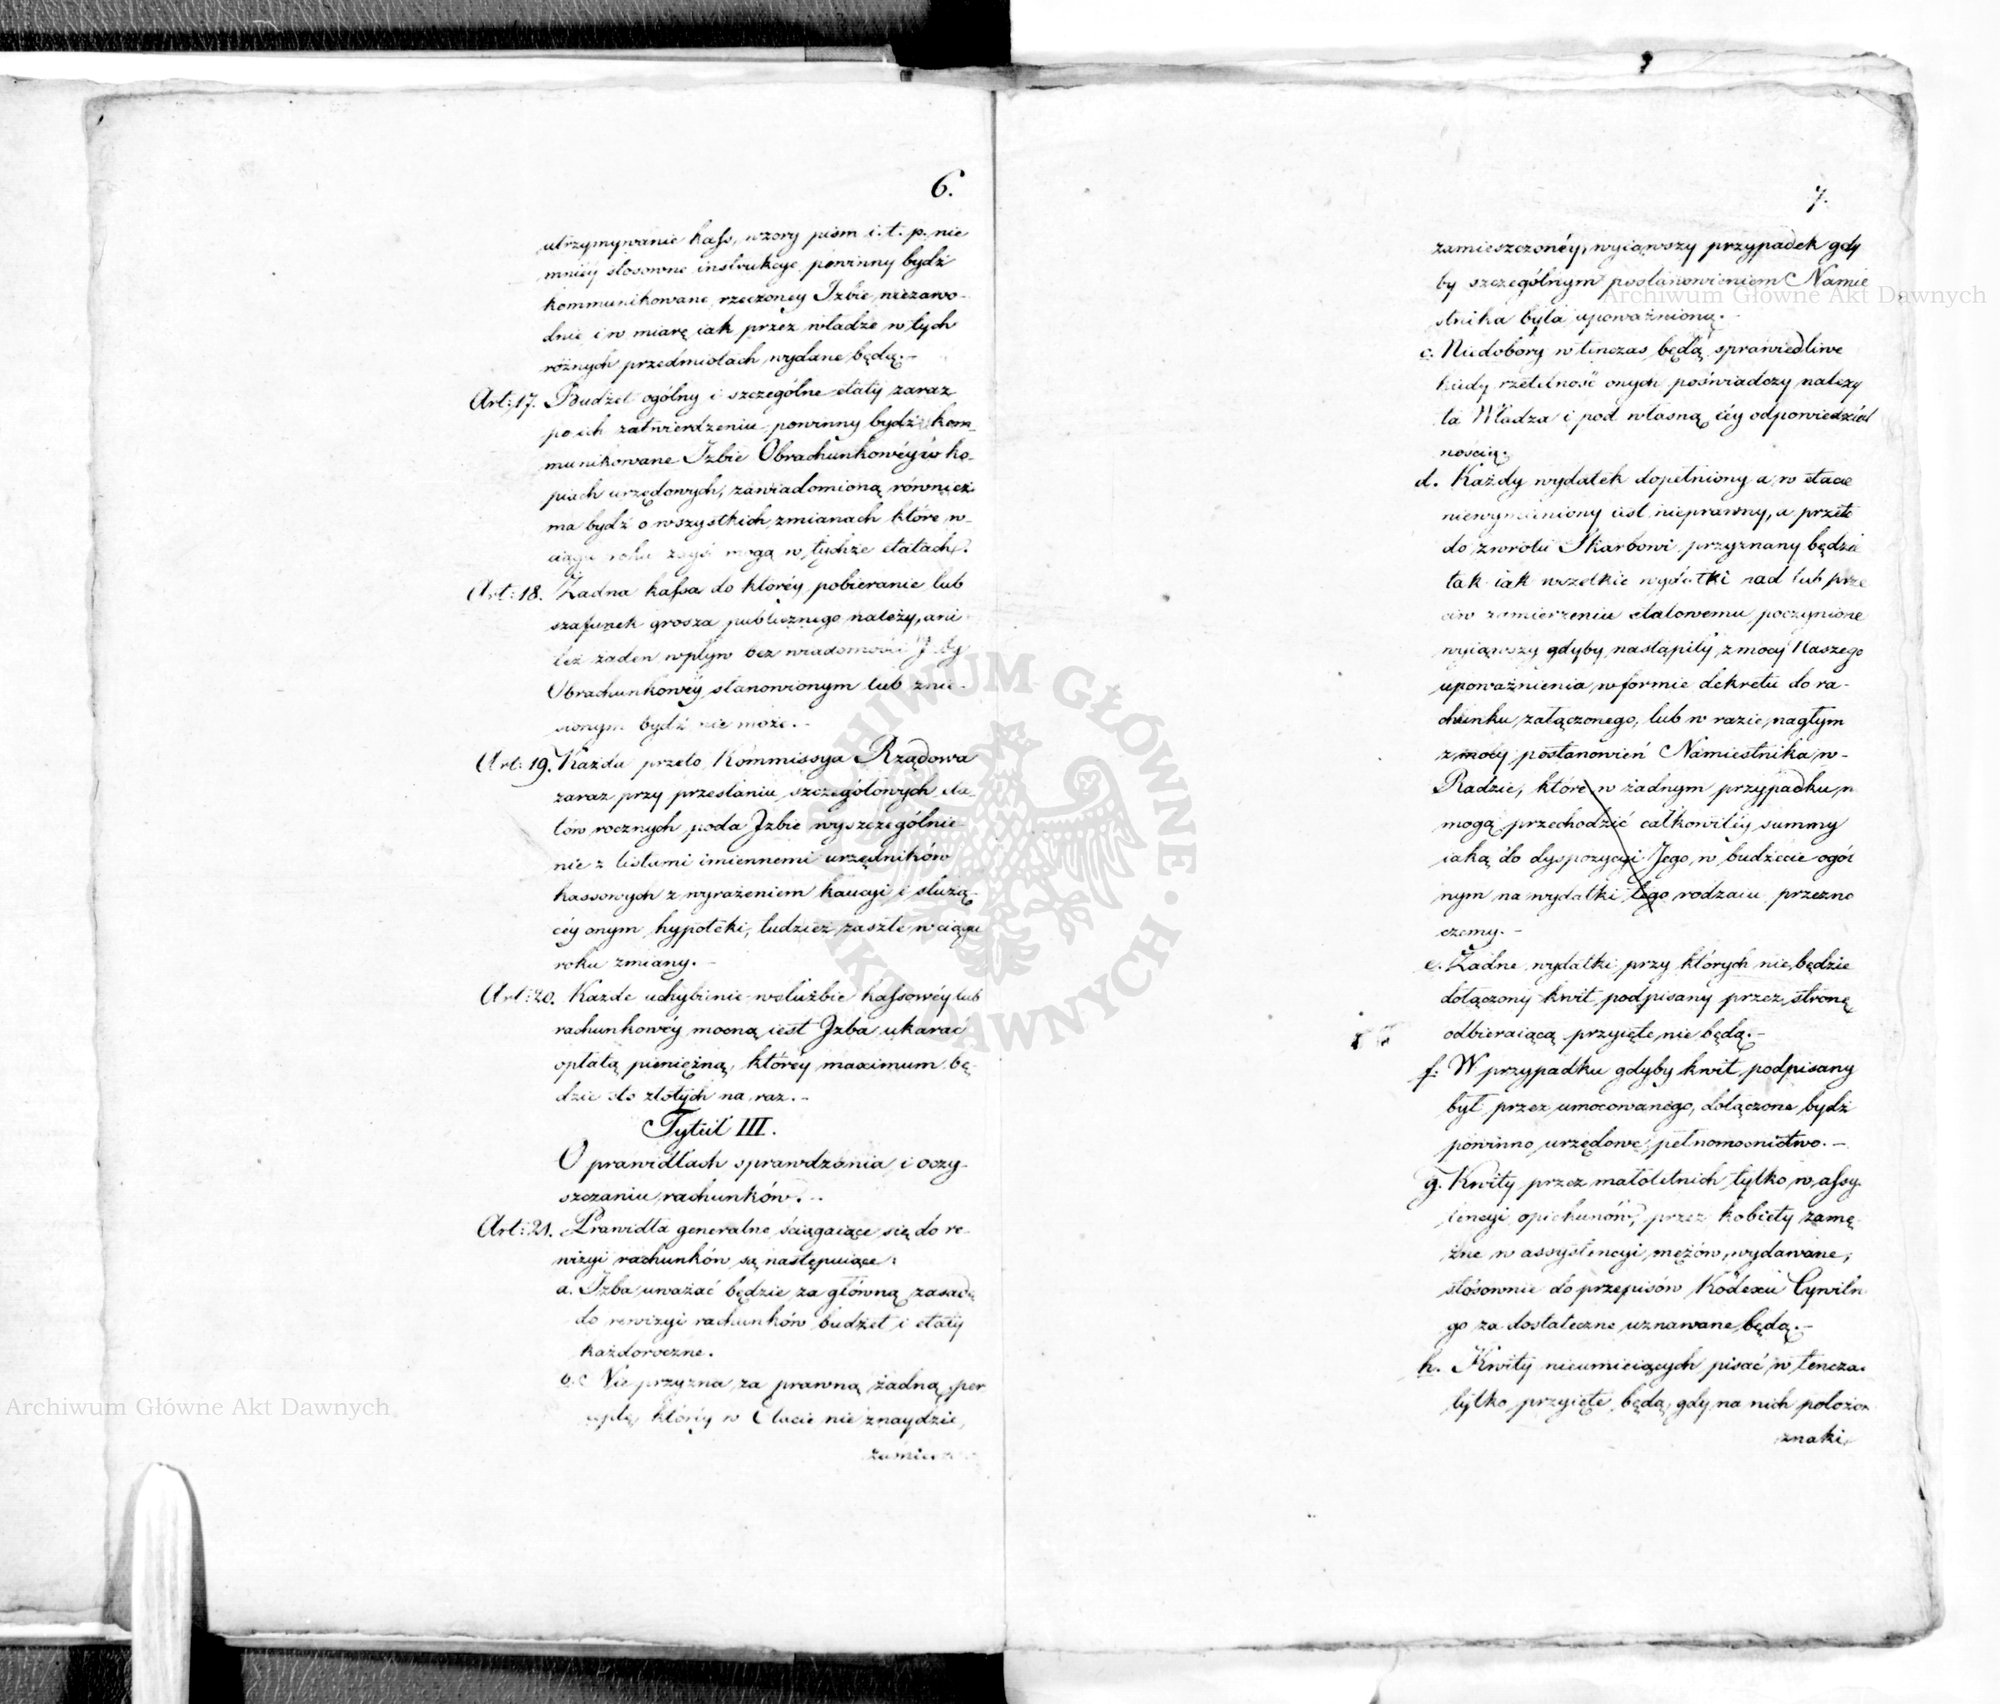 6.
utrzymywanie kass, wzory pism i. t. p. nie
mniéy stosowne instrukcye powinny bydź
kommunikowane rzeczoney Izbie, niezawo-
dnie i w miarę iak przez władze w tych
różnych przedmiotach wydane będą.-
Art: 17. Budżet ogólny i szczególne etaty zaraz
po ich zatwierdzeniu powinny bydź kom-
munikowane Izbie Obrachunkowéy w ko-
piach urzędowych, zawiadomioną również
ma bydź o wszystkich zmianach które w-
ciągu roku zayść mogą w tychże etatach.
Art: 18. Żadna kassa do któréy pobieranie lub
szafunek grosza publicznego należy, ani
też żaden wpływ bez wiadomości Izby
Obrachunkowéy stanowionym lub znie-
sionym bydź nie może.-
Art: 19. Każda przeto Kommissya Rządowa
zaraz przy przesłaniu szczegółowych eta-
tów rocznych poda Izbie wyszczególnie-
nie z listami imiennemi urzędników
kassowych z wyrażeniem kaucyi i służą-
céy onym hypoteki, tudzież zaszłe w ciągu
roku zmiany.-
Art: 20. Każde uchybienie w służbie kassowéy lub
rachunkowéy mocną iest Izba ukarać
opłatą pieniężną, któréy maximum bę-
dzie sto złotych na raz.-
Tytuł III.
O prawidłach sprawdzania i oczy-
szczaniu rachunków.-
Art: 21. Prawidła generalne ściągaiące się do re-
wizyi rachunków są następuiące:
a. Izba uważać będzie za główną zasadę
do rewizyi rachunków budżet i etaty
każdoroczne.
b. Nie przyzna za prawną żadną per
któréy w Etacie nie znaydzie
zamie
7.
zamieszczonéy, wyiąwszy przypadek gdy
by szczególnym postanowieniem Namie
stnika była upoważnioną.-
c. Niedobory w tenczas będą sprawiedliwe
kiedy rzetelność onych poświadczy należy
ta Władza i pod własną iéy odpowiedzial
nością.
d. Każdy wydatek dopełniony a w etacie
niewymieniony iest nieprawny, a przeto
do zwrotu Skarbowi przyznany będzie
tak iak wszelkie wydatki nad lub prze
ciw zamierzeniu etatowemu poczynione
wyiąwszy gdyby nastąpiły z mocy Naszego
upoważnienia w formie dekretu do ra-
chunku załączonego, lub w razie nagłym
z mocy postanowień Namiestnika w-
Radzie, które w żadnym przypadku n
mogą przechodzić całkowitéy summy
iaką do dyspozycyi Jego w budżecie ogól
nym na wydatki tego rodzaiu przezna
czemy.-
e. Żadne wydatki przy których nie będzie
dołączony kwit podpisany przez stronę
odbieraiącą przyięte nie będą.-
f: W przypadku gdyby kwit podpisany
był przez umocowanego, dołączone bydź
powinno urzędowe pełnomocnictwo.-
g. Kwity przez małoletnich tylko w assy
stencyi opiekunów, przez kobiety zamę
żne w assystencyi mężów wydawane,
stósownie do przepisów Kodexu Cywiln
go za dostateczne uznawane będą.-
h. Kwity nieumieiących pisać w tencza
tylko przyięte będą, gdy na nich położon
znaki
Archiwum Główne Akt Dawnych
Archiwum Główne Akt Dawnych
ARCHIWUM GŁÓWNE AKT DAWNYCH